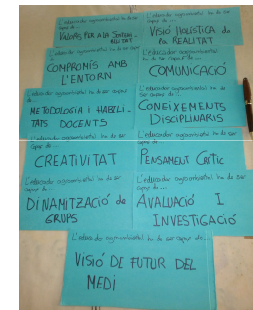 L'educador agroambiental ha de ser capaç de...
VALORS PER A LA SOSTENI-
BILITAT
L'educador agroambiental ha de ser capaç de...
VISIÓ HOLÍSTICA de
la REALITAT
L'educador agroambiental ha de ser capaç de...
COMPROMÍS AMB
L'ENTORN
L'educador agroambiental ha de ser capaç de...
COMUNICACIÓ
L'educador agroambiental ha de ser capaç de...
METODOLOGIA I HABILI-
TATS DOCENTS
L'educador agroambiental ha de ser capaç de...
CONEIXEMENTS
DISCIPLINARIS
L'educador agroambiental ha de ser
capaç de...
CREATIVITAT
L'educador agroambiental ha de ser
capaç de...
PENSAMENT CRÍTIC
L'educador agroambiental ha de ser
capaç de...
DINAMITZACIÓ de
GRUPS
L'educador agroambiental ha de ser
capaç de...
AVALUACIÓ I
INVESTIGACIÓ
L'educador agroambiental ha de ser capaç de...
VISIÓ DE FUTUR DEL
MEDI